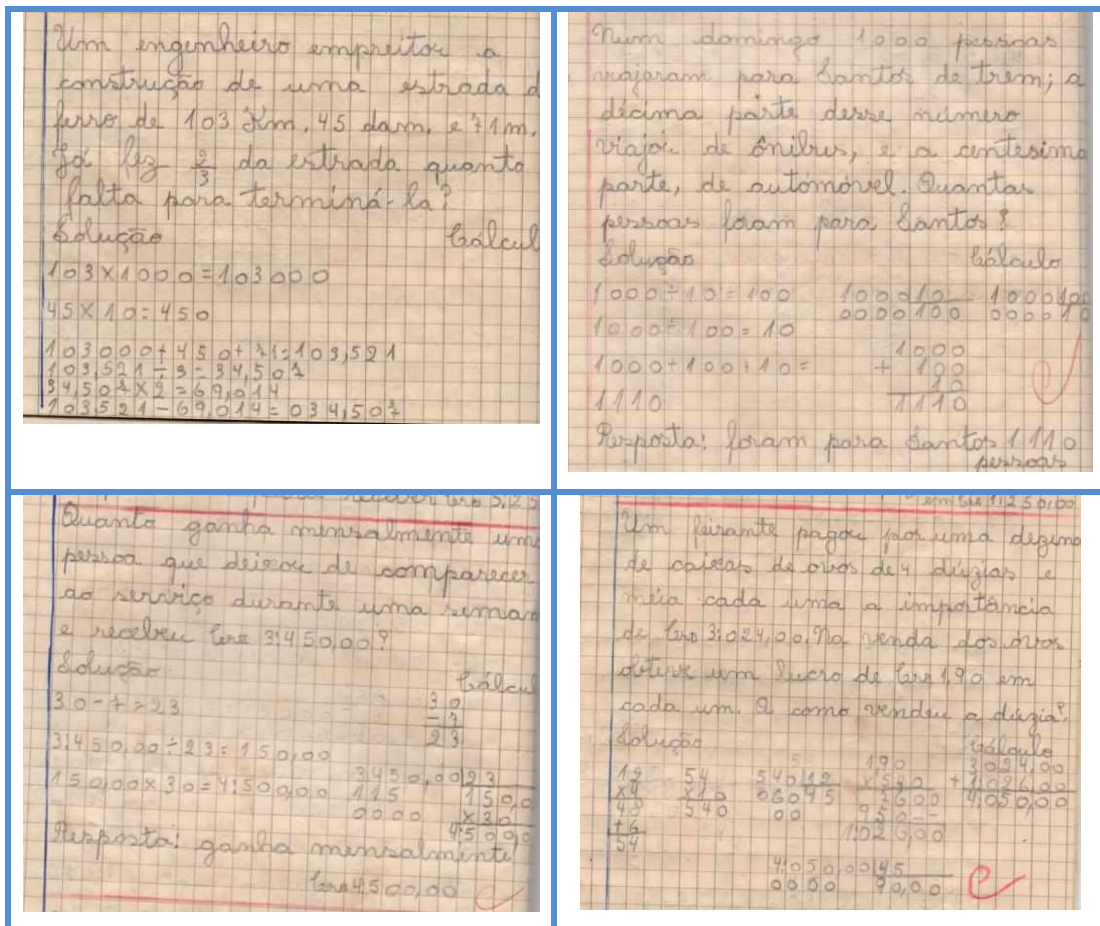 Um engenheiro empreitou a
construção de uma estrada d
ferro de 103 Km. 45 dam. e 71m.
Já fez 2/3 da estrada quanto
falta para terminá-la?
Solução Cálcul
103X1000=103000
45X10=450
103000+450+71=103,521
103,521÷3=34,507
34,507X2=69,014
103521-69,014=034,507
Num domingo 1000 pessoas
viajaram para Santos de trem; a
décima parte desse número
viajou de ônibus, e a centesima
parte, de automóvel. Quantas
pessoas foram para Santos?
Solução Cálculo
1000÷10=100 1000 10 1000 100
0000 100 0000 10
1000÷100=10
1000
1000+100+10= + 100
10
1110 1110
Resposta: foram para Santos 1.110
pessoas
receber Cr$ 3.25
Quanto ganha mensalmente uma
pessoa que deixou de comparecer
ao serviço durante uma seman
e recebeu Cr$ 3.450,00?
Solução Cálcul
30-7=23 30
-7
23
3.450,00÷23=150,00
3450,00 23
150,00X30=4.500,00 115 150,0
0000 X30
4.500,0
Resposta: ganha mensalmente
Cr$ 4.500,00
em Cr$ 1.250,00
Um feirante pagou por uma dezena
de caixas de ovos de 4 dúzias e
meia cada uma a importância
de Cr$ 3.024,00. Na venda dos ovos
obteve um lucro de Cr$ 1,90 em
cada um. A como vendeu a dúzia?
Solução Cálculo
190 3.024,00
12 54 540 12 X540 +1.026,00
X4 X10 060 45 7600 4.050,00
48 540 00 950--
+6 1.026,00
54
4.050,00 45
0000 90,00